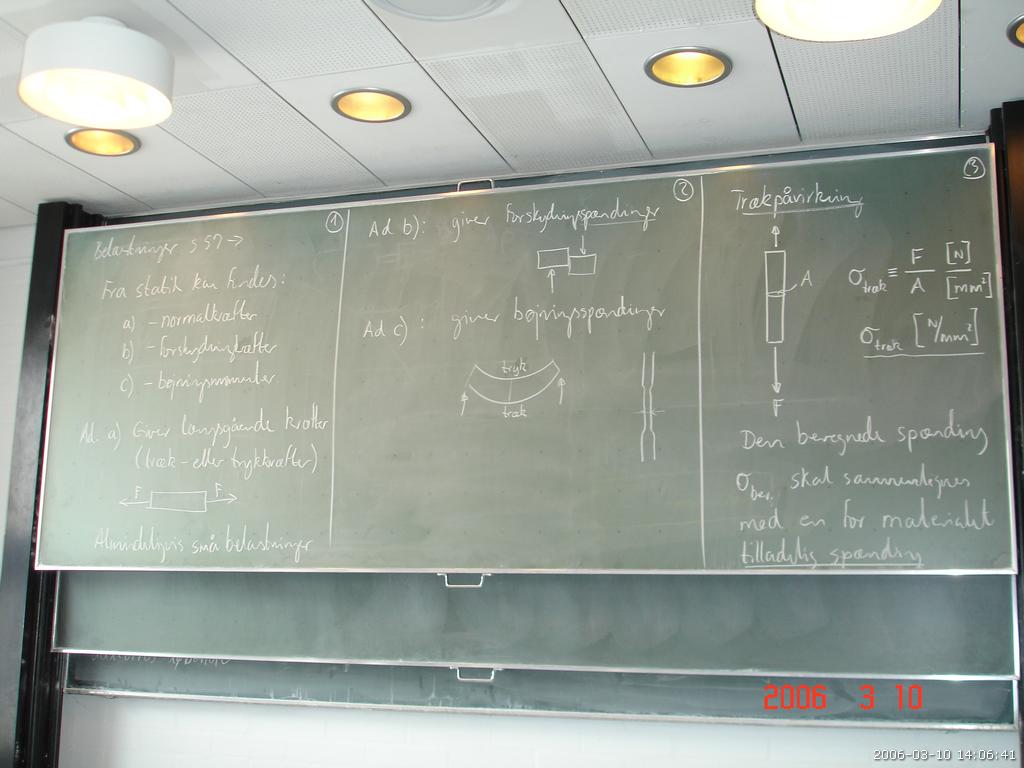 ①
Belastninger s 57 →
Fra statik kan findes:
a) - normalkræfter
b) - forskydningkræfter
c) - bøjningsmomenter
Ad. a) Giver længsgående kræfter
(træk- eller trykkræfter)
F F
Almindeligvis små belastninger
②
Ad b): giver forskydningsspændinger
Ad c): giver bøjningsspændinger
tryk
træk
③
Trækpåvirkning
A
F
σtræk ≡ F/A [N]/[mm²]
σtræk [N/mm²]
Den beregnede spænding
σber. skal sammenlignes
med en for materialet
tilladelig spænding
2006 3 10
2006-03-10 14:06:41